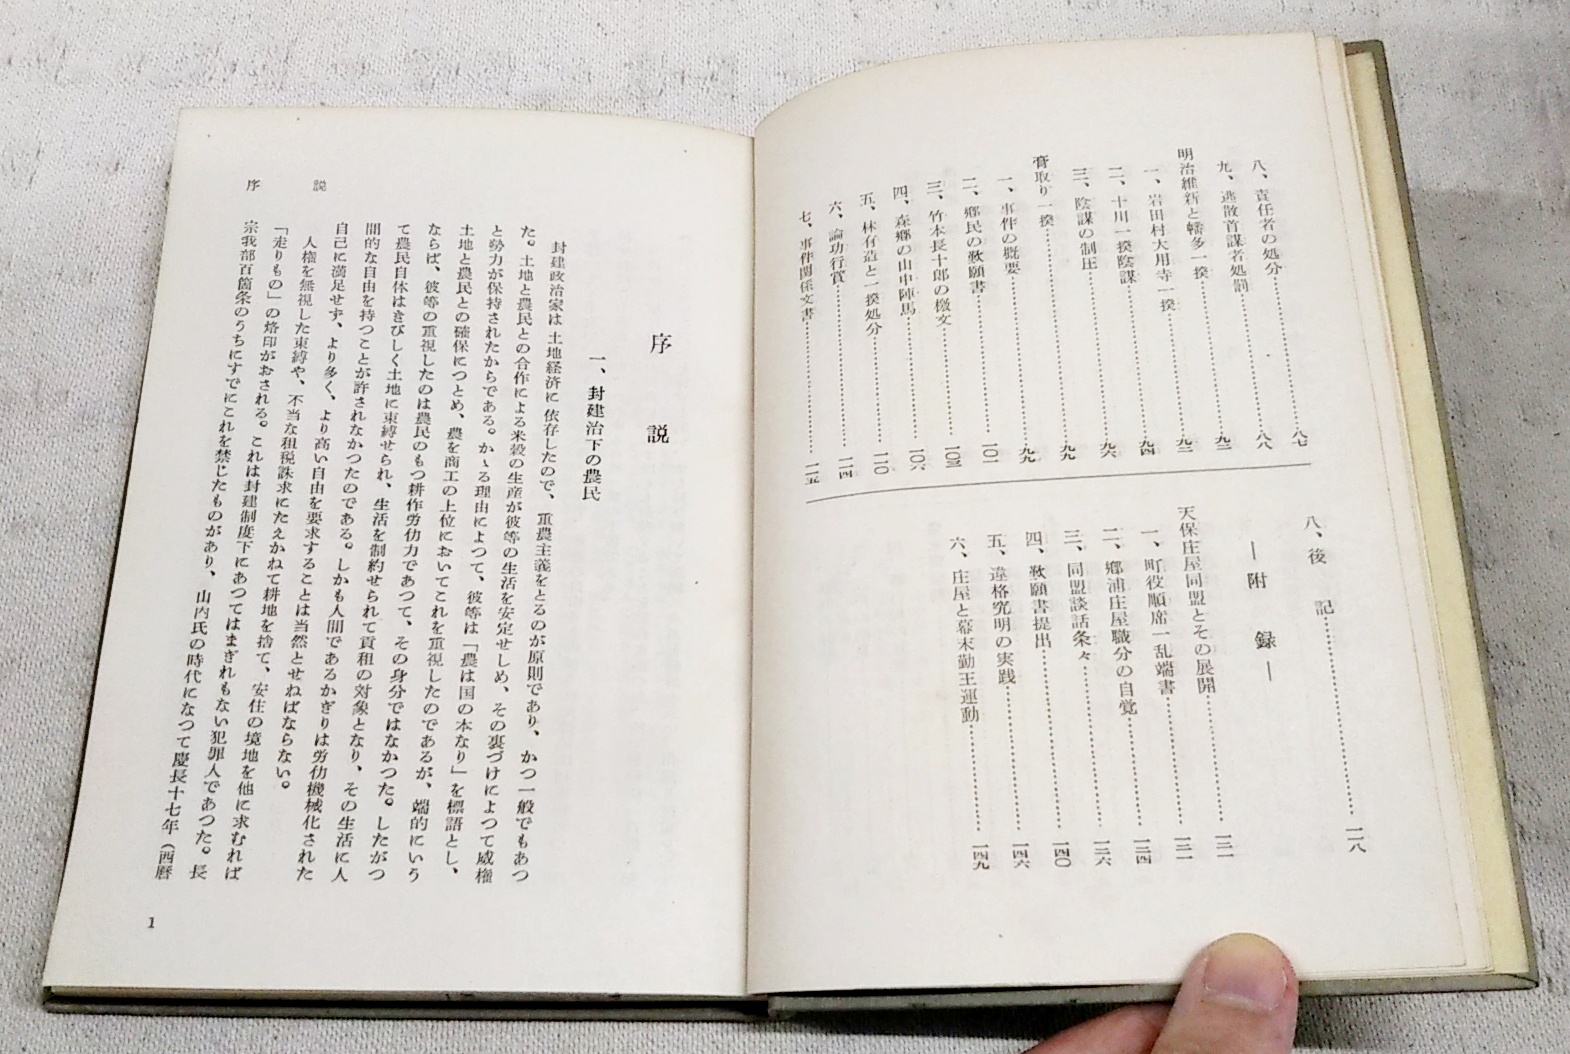 八、責任者の処分……八七
九、逃散首謀者処罰……八八
明治維新と幡多一揆……九二
一、岩田村大用寺一揆……九三
二、十川一揆陰謀……九四
三、陰謀の制圧……九六
膏取り一揆……九九
一、事件の概要……九九
二、郷民の歎願書……一〇一
三、竹本長十郎の檄文……一〇三
四、森郷の山中陣馬……一〇六
五、林有造と一揆処分……一一〇
六、論功行賞……一一四
七、事件関係文書……一一五
八、後記……一二八
―附録―
天保庄屋同盟とその展開……一三一
一、町役順席一乱端書……一三一
二、郷浦庄屋職分の自覚……一三四
三、同盟談話条々……一三六
四、歎願書提出……一四〇
五、違格究明の実践……一四六
六、庄屋と幕末勤王運動……一四九
序説
一、封建治下の農民
封建政治家は土地経済に依存したので、重農主義をとるのが原則であり、かつ一般でもあつ
た。土地と農民との合作による米穀の生産が彼等の生活を安定せしめ、その裏づけによつて威権
と勢力が保持されたからである。かゝる理由によつて、彼等は「農は国の本なり」を標語とし、
土地と農民との確保につとめ、農を商工の上位においてこれを重視したのであるが、端的にいう
ならば、彼等の重視したのは農民のもつ耕作労仂力であつて、その身分ではなかつた。したがつ
て農民自休はきびしく土地に束縛せられ、生活を制約せられて貢租の対象となり、その生活に人
間的な自由を持つことが許されなかつたのである。しかも人間であるかぎりは労仂機械化された
自己に満足せず、より多く、より高い自由を要求することは当然とせねばならない。
人権を無視した束縛や、不当な租税誅求にたえかねて耕地を捨て、安住の境地を他に求むれば
「走りもの」の烙印がおされる。これは封建制度下にあつてはまぎれもない犯罪人であつた。長
宗我部百箇条のうちにすでにこれを禁じたものがあり、山内氏の時代になつて慶長十七年（西暦
序説
1